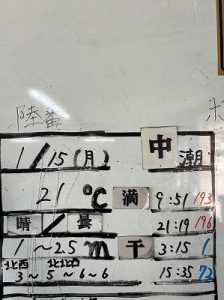 陸番
1/15(月) 中潮
21℃ 満 9:51 193
晴/曇 21:19 196
1~2.5m 干 3:15 1
北西 北北西
3~5~6~6 15:35 72